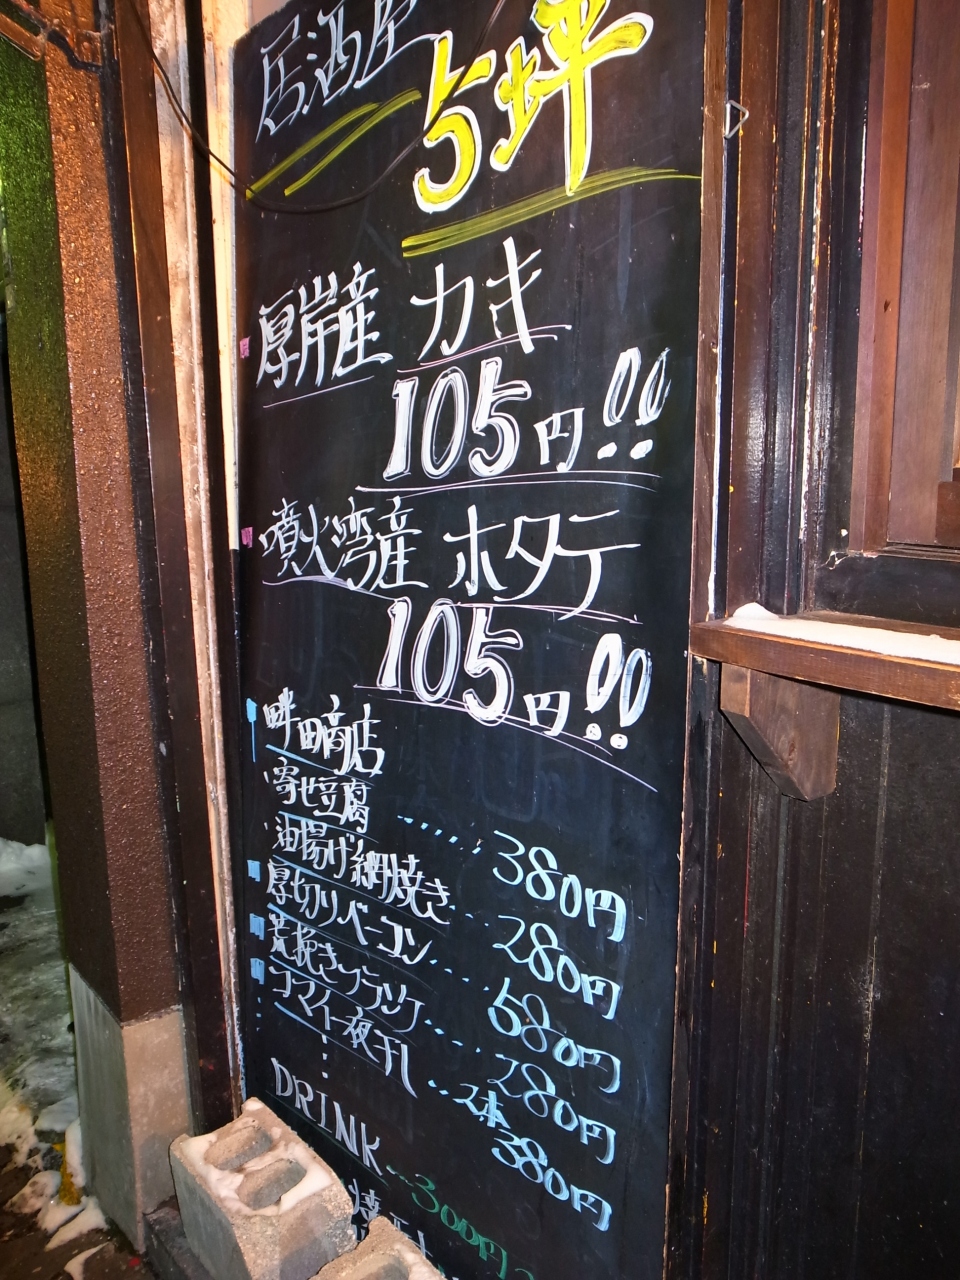 居酒屋
5坪
厚岸産 カキ
105円!!
噴火湾産 ホタテ
105円!!
畔田商店
寄せ豆腐 ‥‥‥ 380円
油揚げ網焼き‥‥ 280円
厚切りベーコン‥‥ 580円
荒挽きフランク‥‥ 280円
コマイ一夜干し‥2本 380円
DRINK‥300円